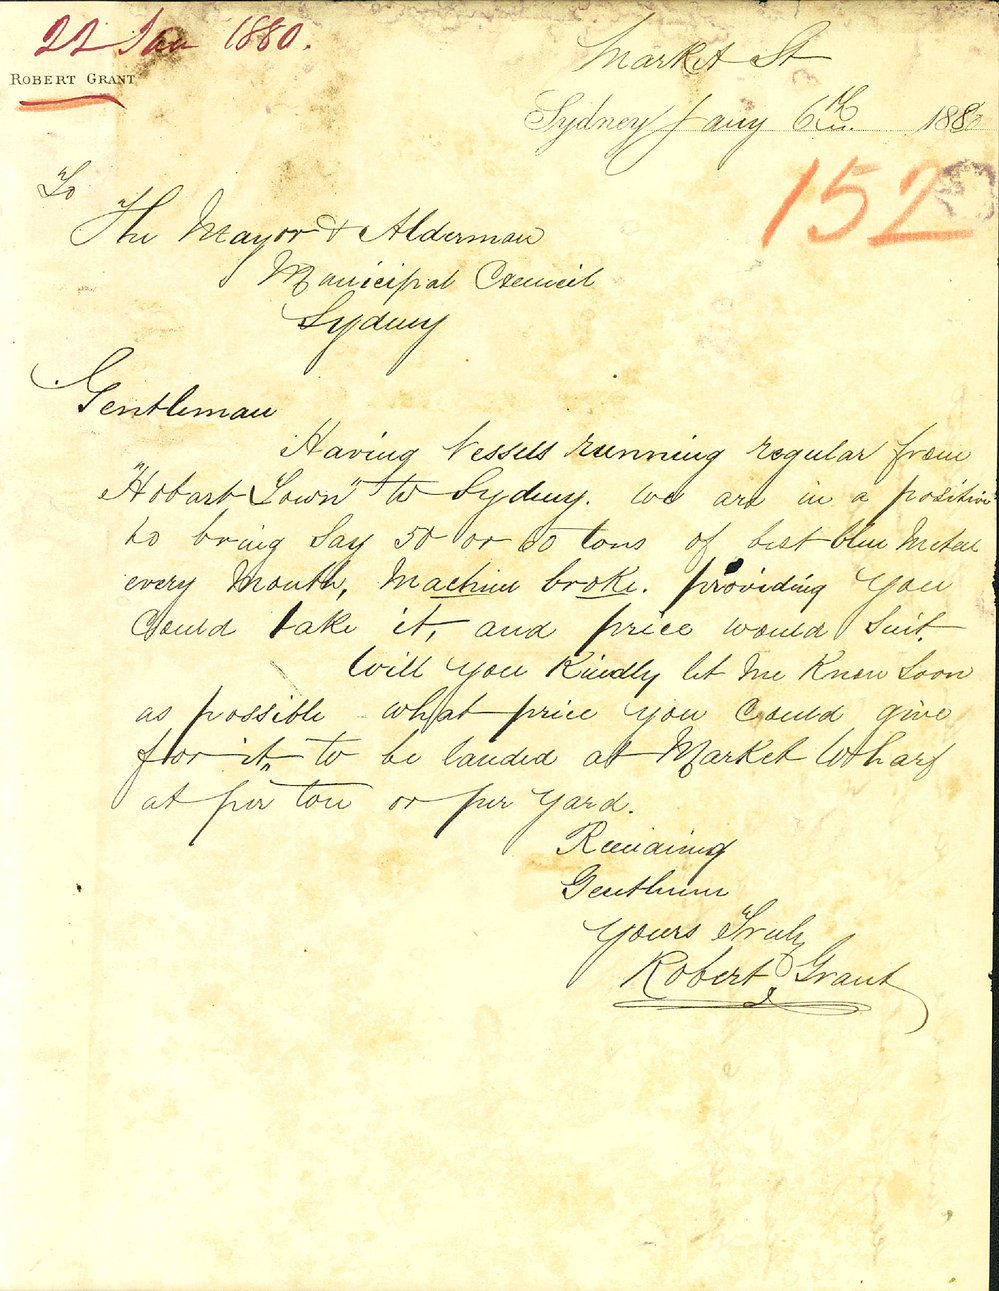 22 Jan 1880.
ROBERT GRANT
Market St
Sydney Jany 6th. 1880
152
To
The Mayor & Alderman
Municipal Council
Sydney
Gentleman
Having Vessels running regular from
"Hobart Town" to Sydney. We are in a position
to bring Say 50 or 60 tons of best blue Metal
every Month, Machine broke. providing you
Could take it, and price would Suit.
Will you Kindly let me Know Soon
as possible what price you Could give
for it to be landed at Market Wharf
at per ton or per yard.
Remaining
Gentlemen
Yours Truly
Robert Grant